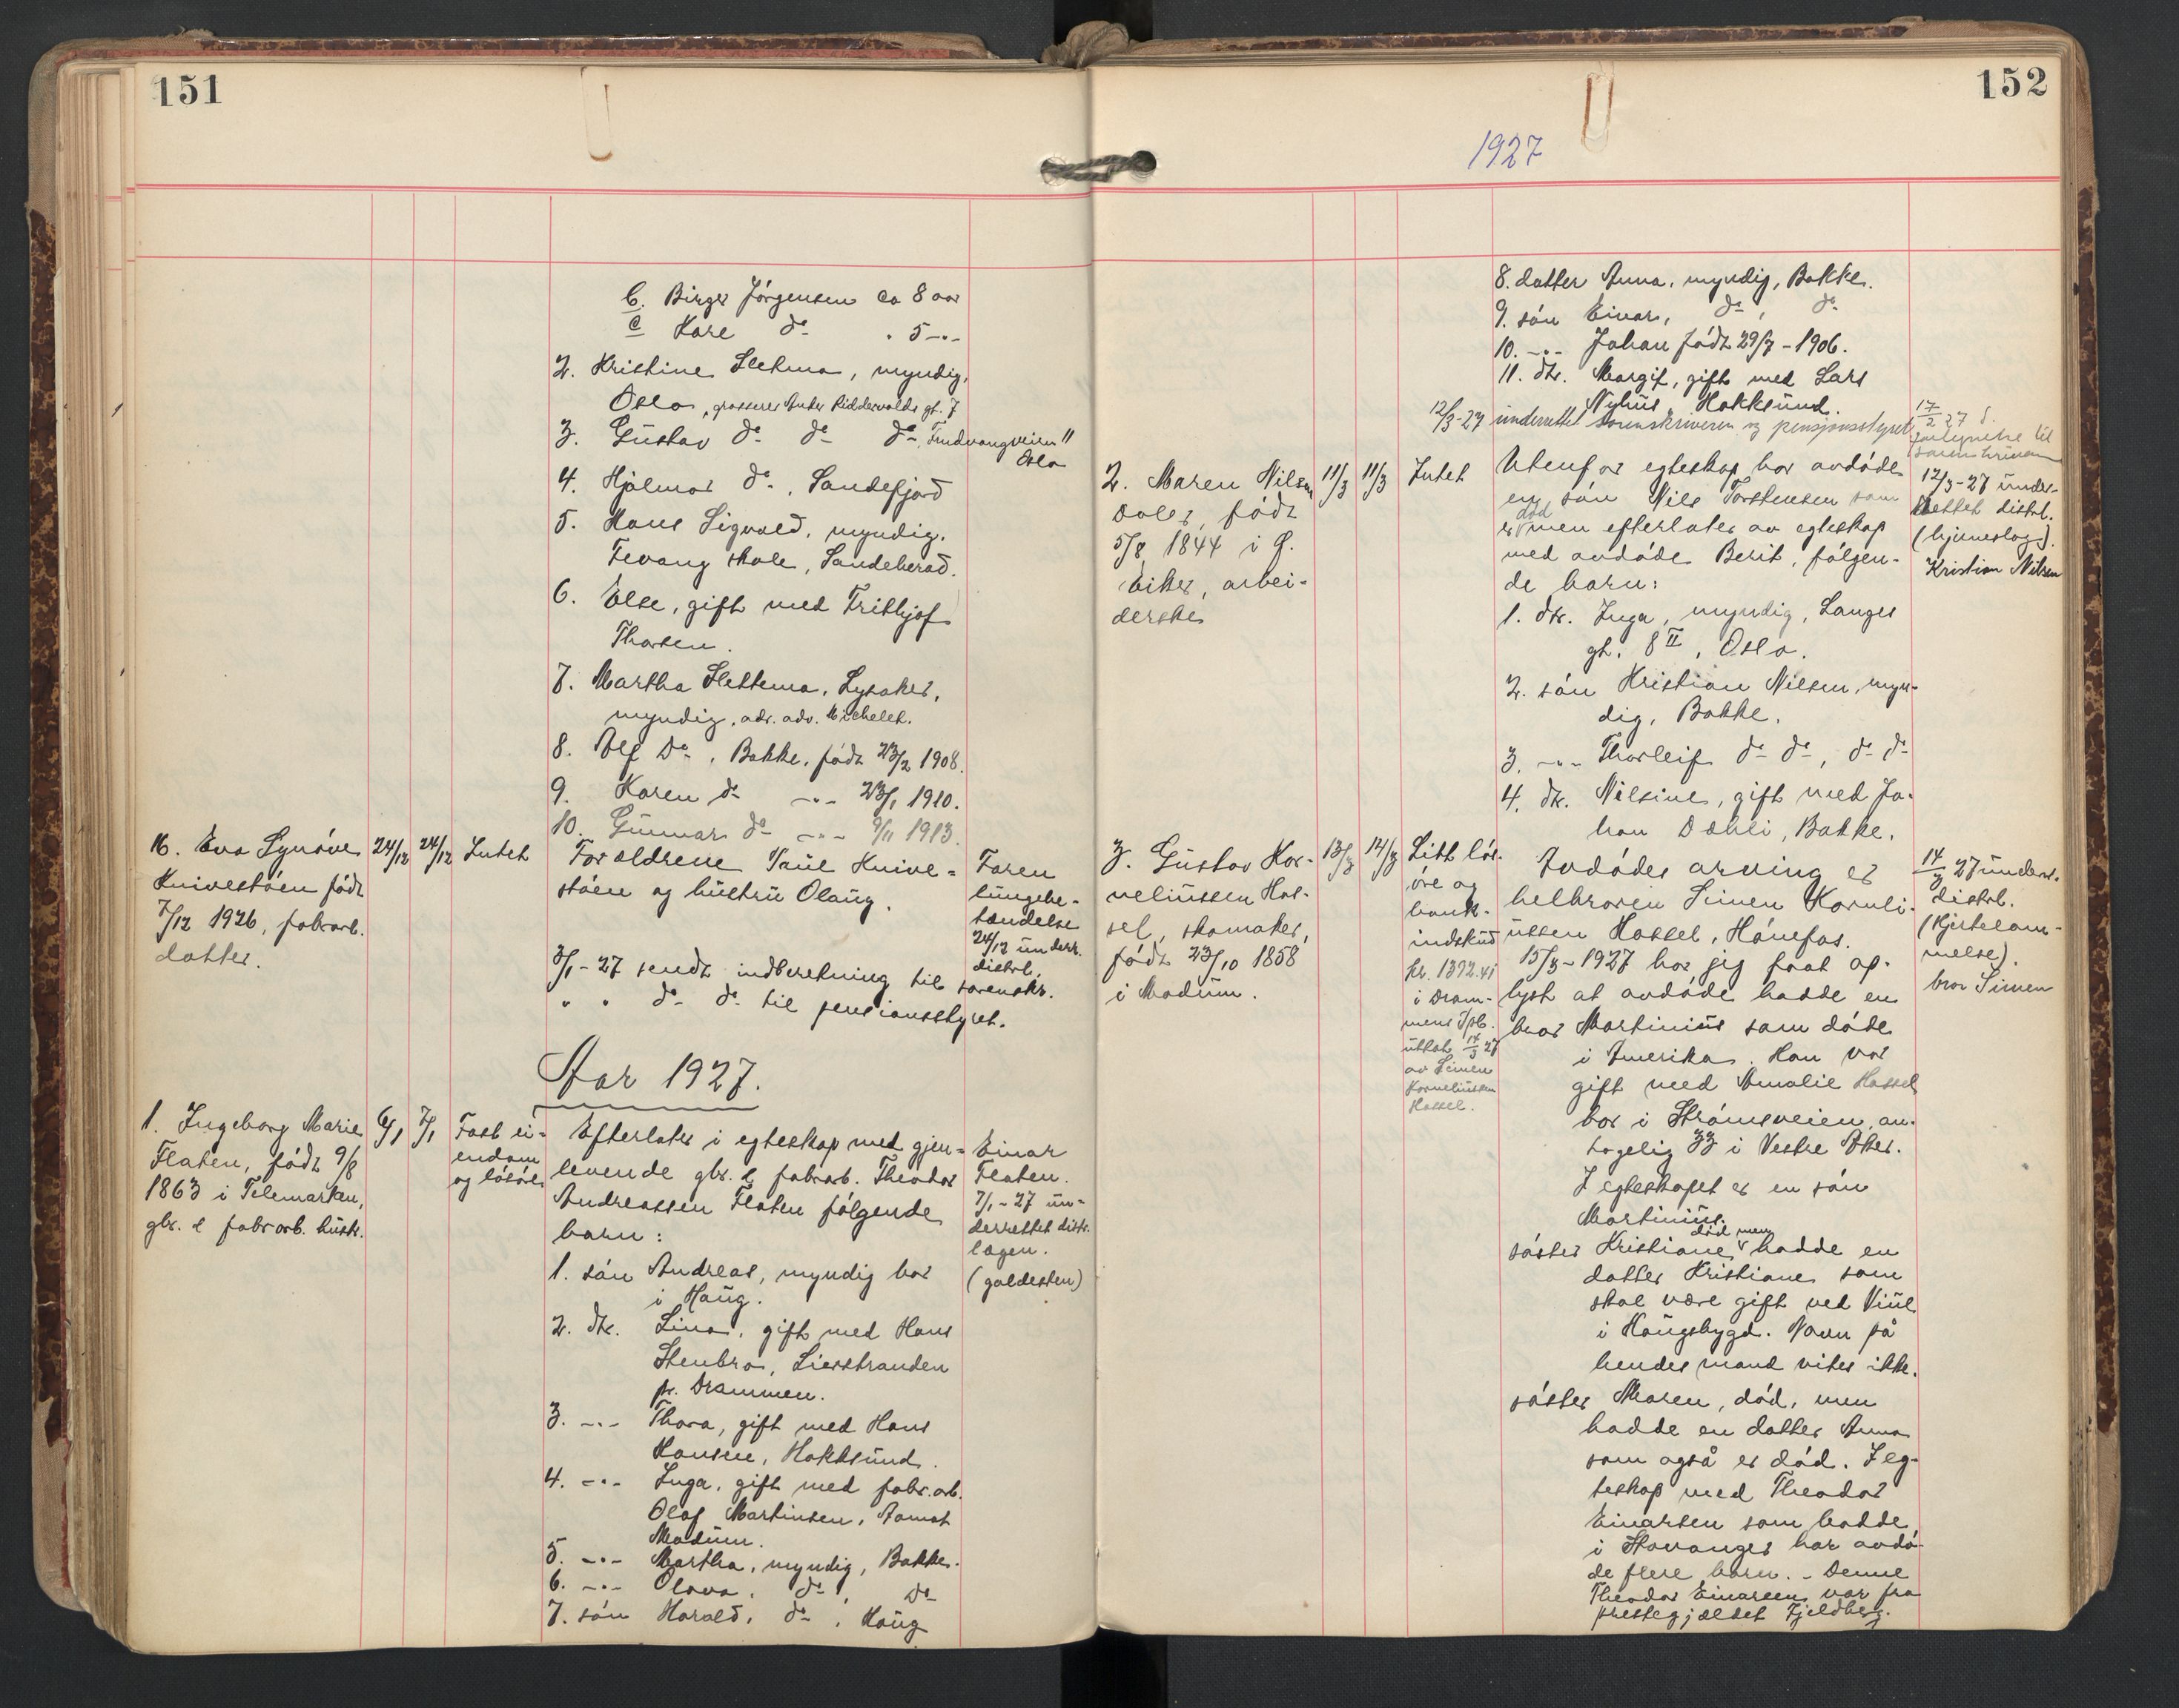 151
b. Birger Jörgensen ca 8 aar
c Kåre do " 5 -"-
2. Kristine Sletmo, myndig,
Oslo, grosserer Riddervolds gt. 7
3. Gustav do do do, Trudvangveien 11
Oslo
4. Hjalmar do, Sandefjord
5. Hans Sigvald, myndig,
Fevang skole, Sandeherad.
6. Else, gift med Frithjof
Thorsen.
7. Martha Slettemo, Lysaker,
myndig, adr. adv. Michelet.
8. Alf do, Bakke, född 23/2 1908.
9. Karen do -"- 23/1 1910.
10. Gunnar do -"- 9/11 1913.
16. Eva Synöve
Knivestöen född
7/12 1926, fabrarb.
datter.
24/12
24/12
Intet
Foreldrene Paul Knive-
stöen og hustru Olaug.
Faren
lungebe-
tændelse
24/12 underr.
distrl.
3/1-27 sendt indberetning til sorenskr.
" " do do til pensjonsstyret.
Aar 1927.
1. Ingeborg Marie
Flaten, född 9/8
1863 i Telemarken,
gbr. & fabrarb. hustr.
6/1
7/1
Fast ei-
endom
og lösöre
Efterlater i egteskap med gjen-
levende gbr. & fabrarb. Theodor
Andreassen Flaten fölgende
barn:
Einar
Flaten.
7/1-27 un-
derrettet distr.
lægen.
(galdesten)
1. sön Andreas, myndig bor
i Haug.
2. dtr. Lina, gift med Hans
Stenbro, Lierstranden
pr. Drammen.
3. -"- Thora, gift med Hans
Hansen, Hokksund.
4. -"- Inga, gift med fabr.arb.
Olaf Martinsen, Aamot
Modum.
5. -"- Martha, myndig, Bakke.
6. -"- Olava, do, do
7. sön Harald, do, Haug
152
1927
8. datter Anna, myndig, Bakke.
9. sön Einar, do, do
10. -"- Johan född 29/7-1906.
11. dtr. Margit, gift med Lars
Nyhus, Hokksund.
12/3-27 underrettet sorenskriveren og pensjonsstyret
17/2 27
til
sorenskriveren
2. Maren Nilsen
Doler, född
5/8 1844 i Ö.
Eiker, arbei-
derske
11/3
11/3
Intet
Utenfor egteskap har avdöde
en sön Nils Torstensen som
er död men efterlater av egteskap
med avdöde Berit, fölgen-
de barn:
12/3-27 under-
rettet distrl.
(hjerneslag).
Kristian Nilsen
1. dtr. Inga, myndig, Langes
gt. 8 II, Oslo.
2. sön Kristian Nilsen, myn-
dig, Bakke.
3. -"- Thorleif do do, do do
4. dtr. Nilsine, gift med Jo-
han Dæhli, Bakke.
3. Gustav Kor-
neliussen Has-
sel, skomaker,
född 23/10 1858
i Modum.
13/3
14/3
Litt lös-
öre og
bank-
indskud
kr. 1392.41
i Dram-
mens Spb.
uttat 14/3 27
av Simen
Korneliussen
Hassel.
Avdödes arving er
helbroren Simen Korneli-
ussen Hassel, Hönefos.
15/3-1927 har jeg faat op-
lyst at avdöde hadde en
bror Martinius som döde
i Amerika. Han var
gift med Amalie Hassel
bor i Strömsveien, an-
tagelig 33 i Vestre Aker.
I egteskapet er en sön
Martinius.
söster Kristiane död men hadde en
datter Kristiane som
skal være gift ved Viul
i Haugsbygd. Navn på
hendes mand vites ikke.
söster Maren, död, men
hadde en datter Anna
som også er död. I eg-
teskap med Theodor
Einarsen som bodde
i Stavanger har avdö-
de flere barn. - Denne
Theodor Einarsen var fra
prestegjældet Fjeldberg.
14/3 27 underr.
distrl.
(Hjertelam-
melse).
bror Simen